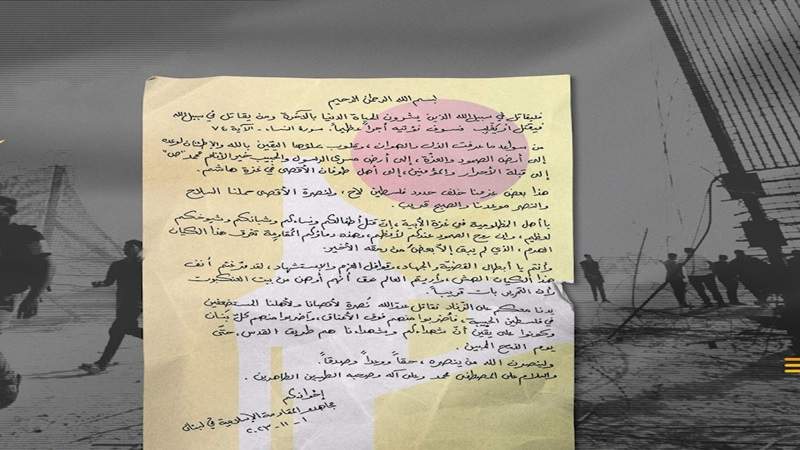 بسم الله الرحمن الرحيم
فليقاتل في سبيل الله الذين يشرون الحياة الدنيا بالآخرة ومن يقاتل في سبيل الله
فيقتل أو يغلب فسوف نؤتيه أجراً عظيماً. سورة النساء - الآية ٧٤
من سواعد ما عرفت الذل والهوان، وقلوب ملؤها اليقين بالله والاطمئنان لوعده
إلى أرض الصمود والعزّة، إلى أرض مسرى الرسول والحبيب خير الأنام محمد "ص"
إلى قبلة الأحرار والمؤمنين، إلى أهل طوفان الأقصى في غزة هاشم.
هذا بعض عزمنا خلف حدود فلسطين لاح، ولنصرة الأقصى حملنا السلاح
والنصر موعدنا والصبح قريب.
يا أهل المظلومية في غزة الأبية، إن قتل أطفالكم ونساءكم وشبانكم وشيوخكم
لعظيم، وإن ريح الصمود عندكم لأعظم، وهذه دماؤكم المقاومة تغرق هذا الكيان
الهرم، الذي لم يبق إلا بعضٌ من رمقه الأخير.
وأنتم يا أبطال القضيّة والجهاد، وقوافل العزم والاستشهاد، لقد مرّغتم أنف
هذا الكيان الهش، وأريتم العالم حق أنهم أوهن من بيت العنكبوت
وأن بات قريباً.
يدنا معكم على الزّناد نقاتل نصرة لأقصانا ولأهلنا المستضعفين
في فلسطين الحبيبة، فاضربوا منهم فوق الأعناق، واضربوا منهم كلّ بنان
وكونوا على يقين أنّ شهداءكم وشهداءنا هم طريق القدس، حتّى
يوم الفتح المبين.
ولينصرن الله من ينصره، حقاً ووعداً وصدقاً.
والسلام على المصطفى محمد وعلى آله وصحبه الطيبين الطاهرين.
إخوانكم
مجاهدو المقاومة الإسلامية في لبنان
١ - ١١ - ٢٠٢٣